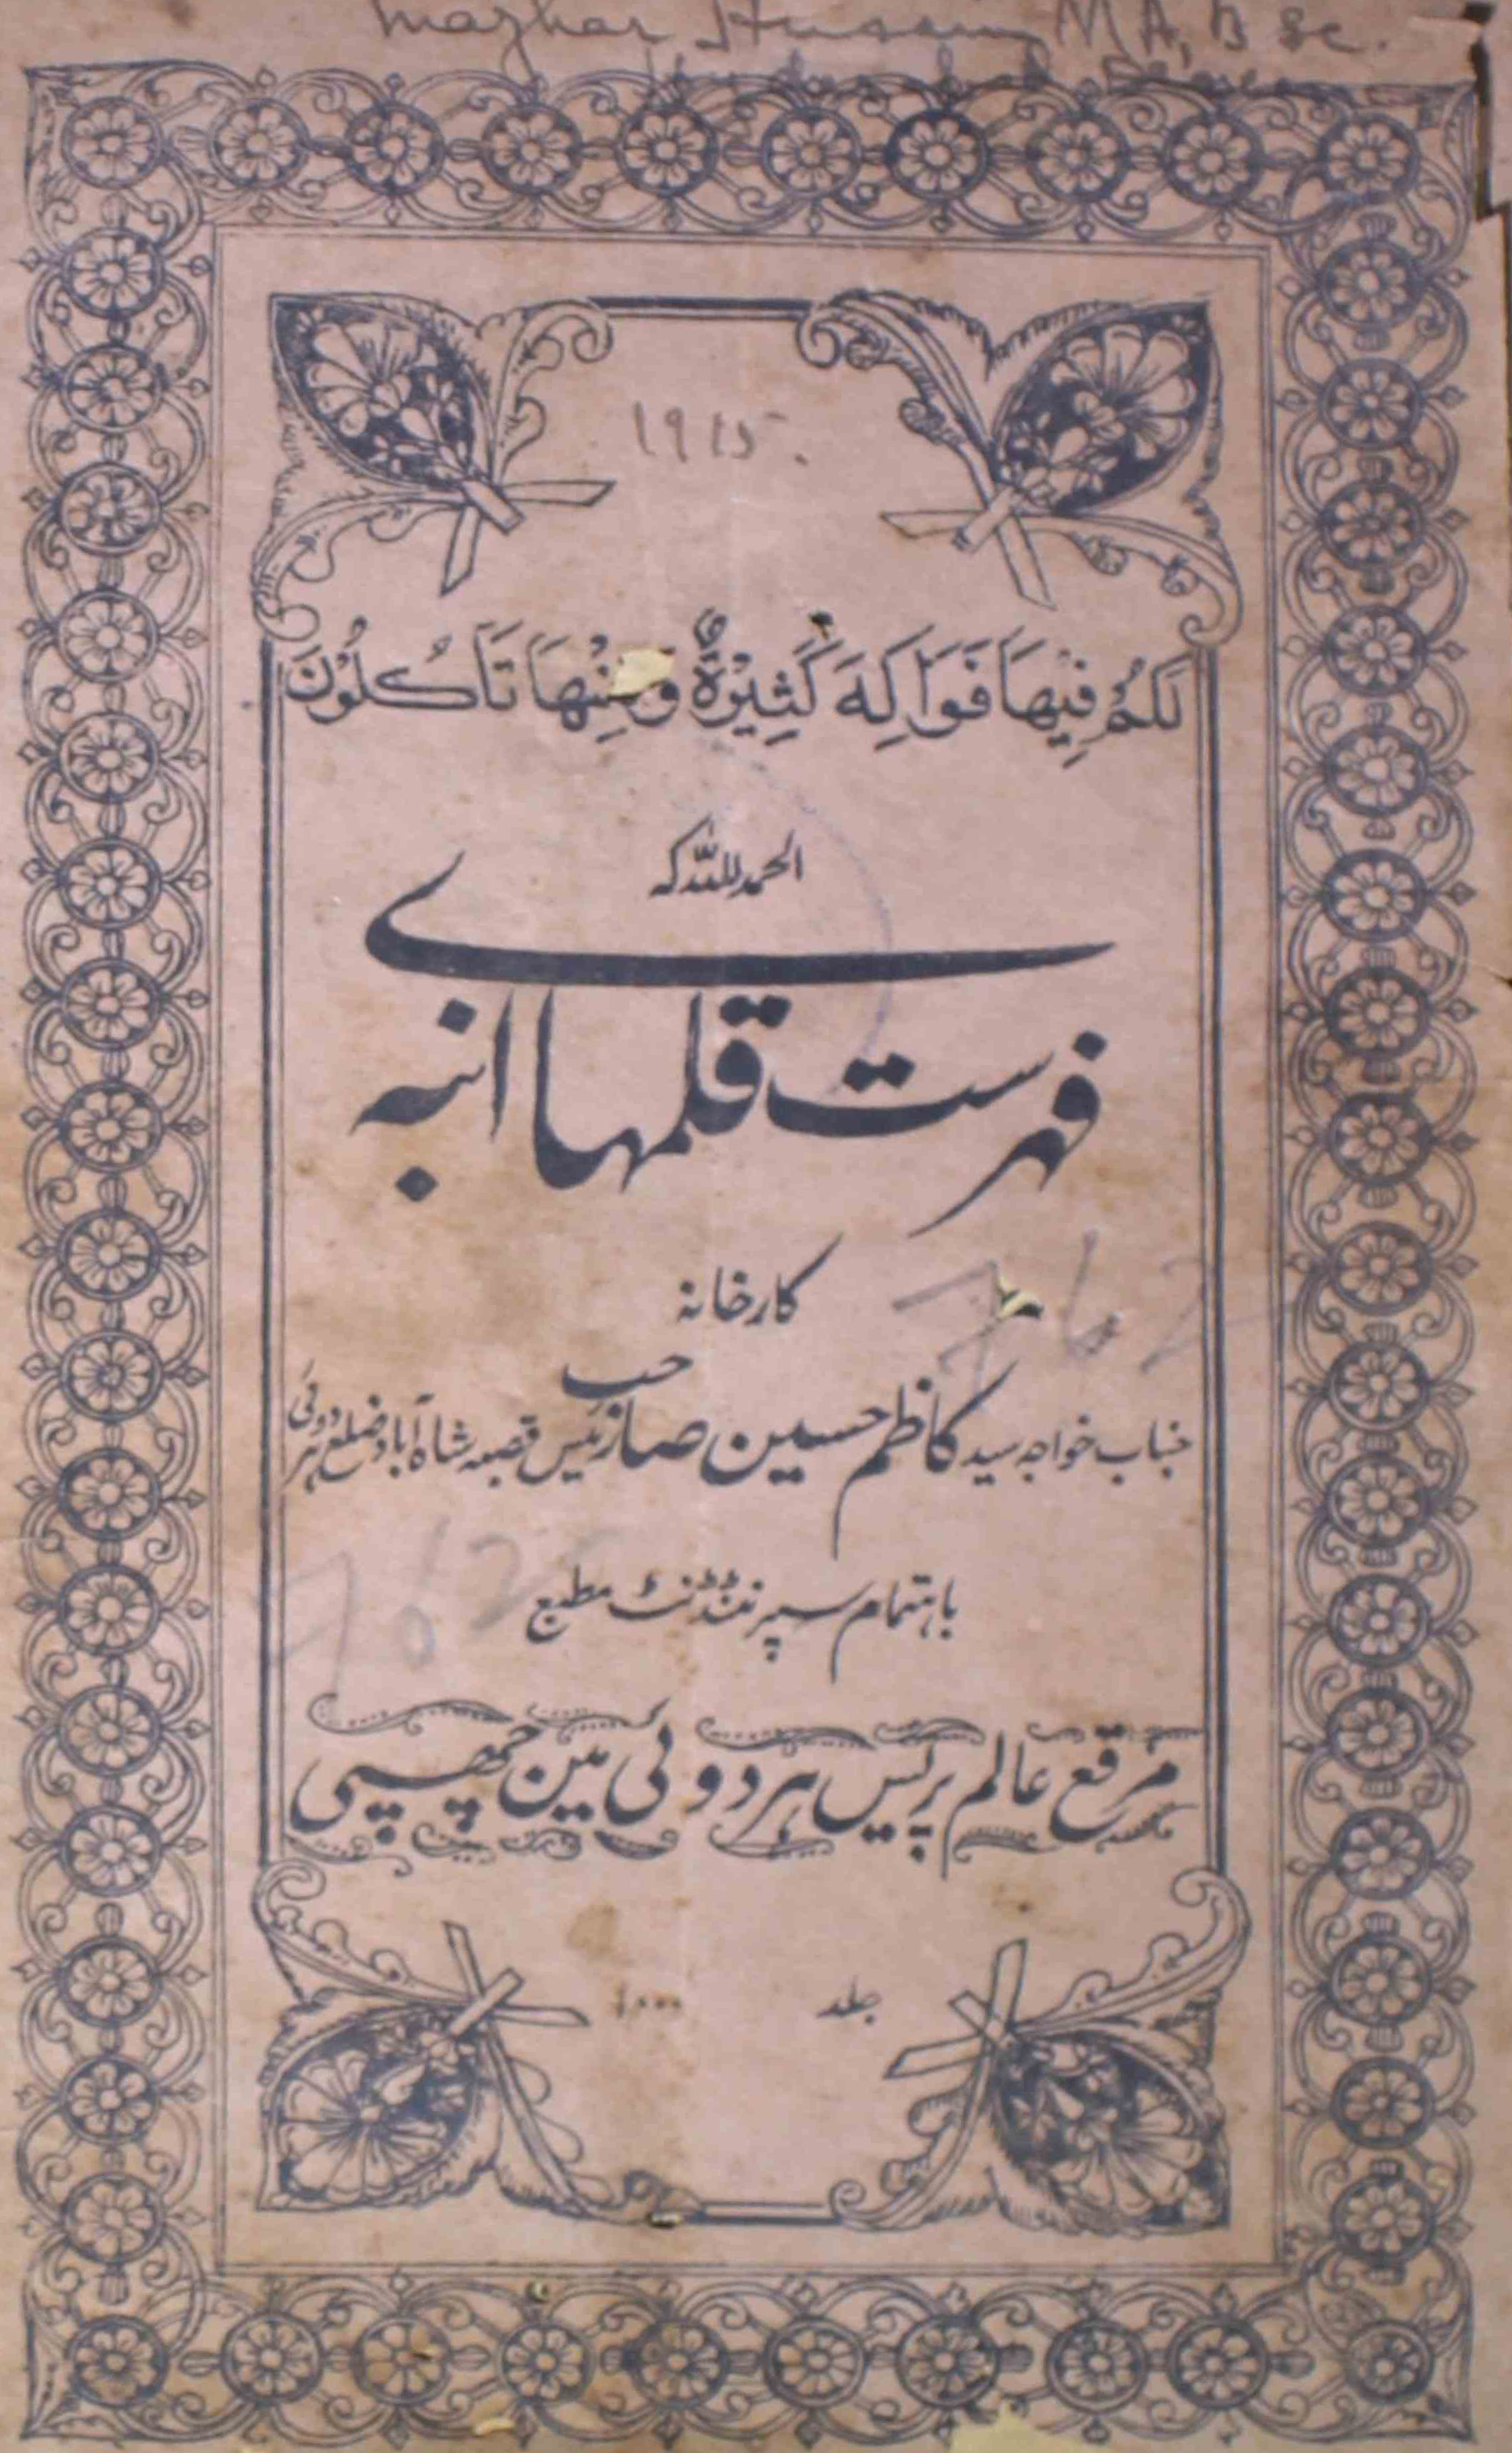 Mazhar Hussain MA, B Sc.
۱۹۱۵
لَكُمْ فِيْهَا فَوَاكِهُ كَثِيْرَةٌ وَّمِنْهَا تَأْكُلُوْنَ
الحمد للہ کہ
فہرست قلمہاے انبہ
کارخانہ
جناب خواجہ سید کاظم حسین صاحب رئیس قصبہ شاہ آباد ضلع ہردوئی
762
باہتمام سپرنٹنڈنٹ مطبع
762
مرقع عالم پریس ہردوئی مین چھپی
جلد